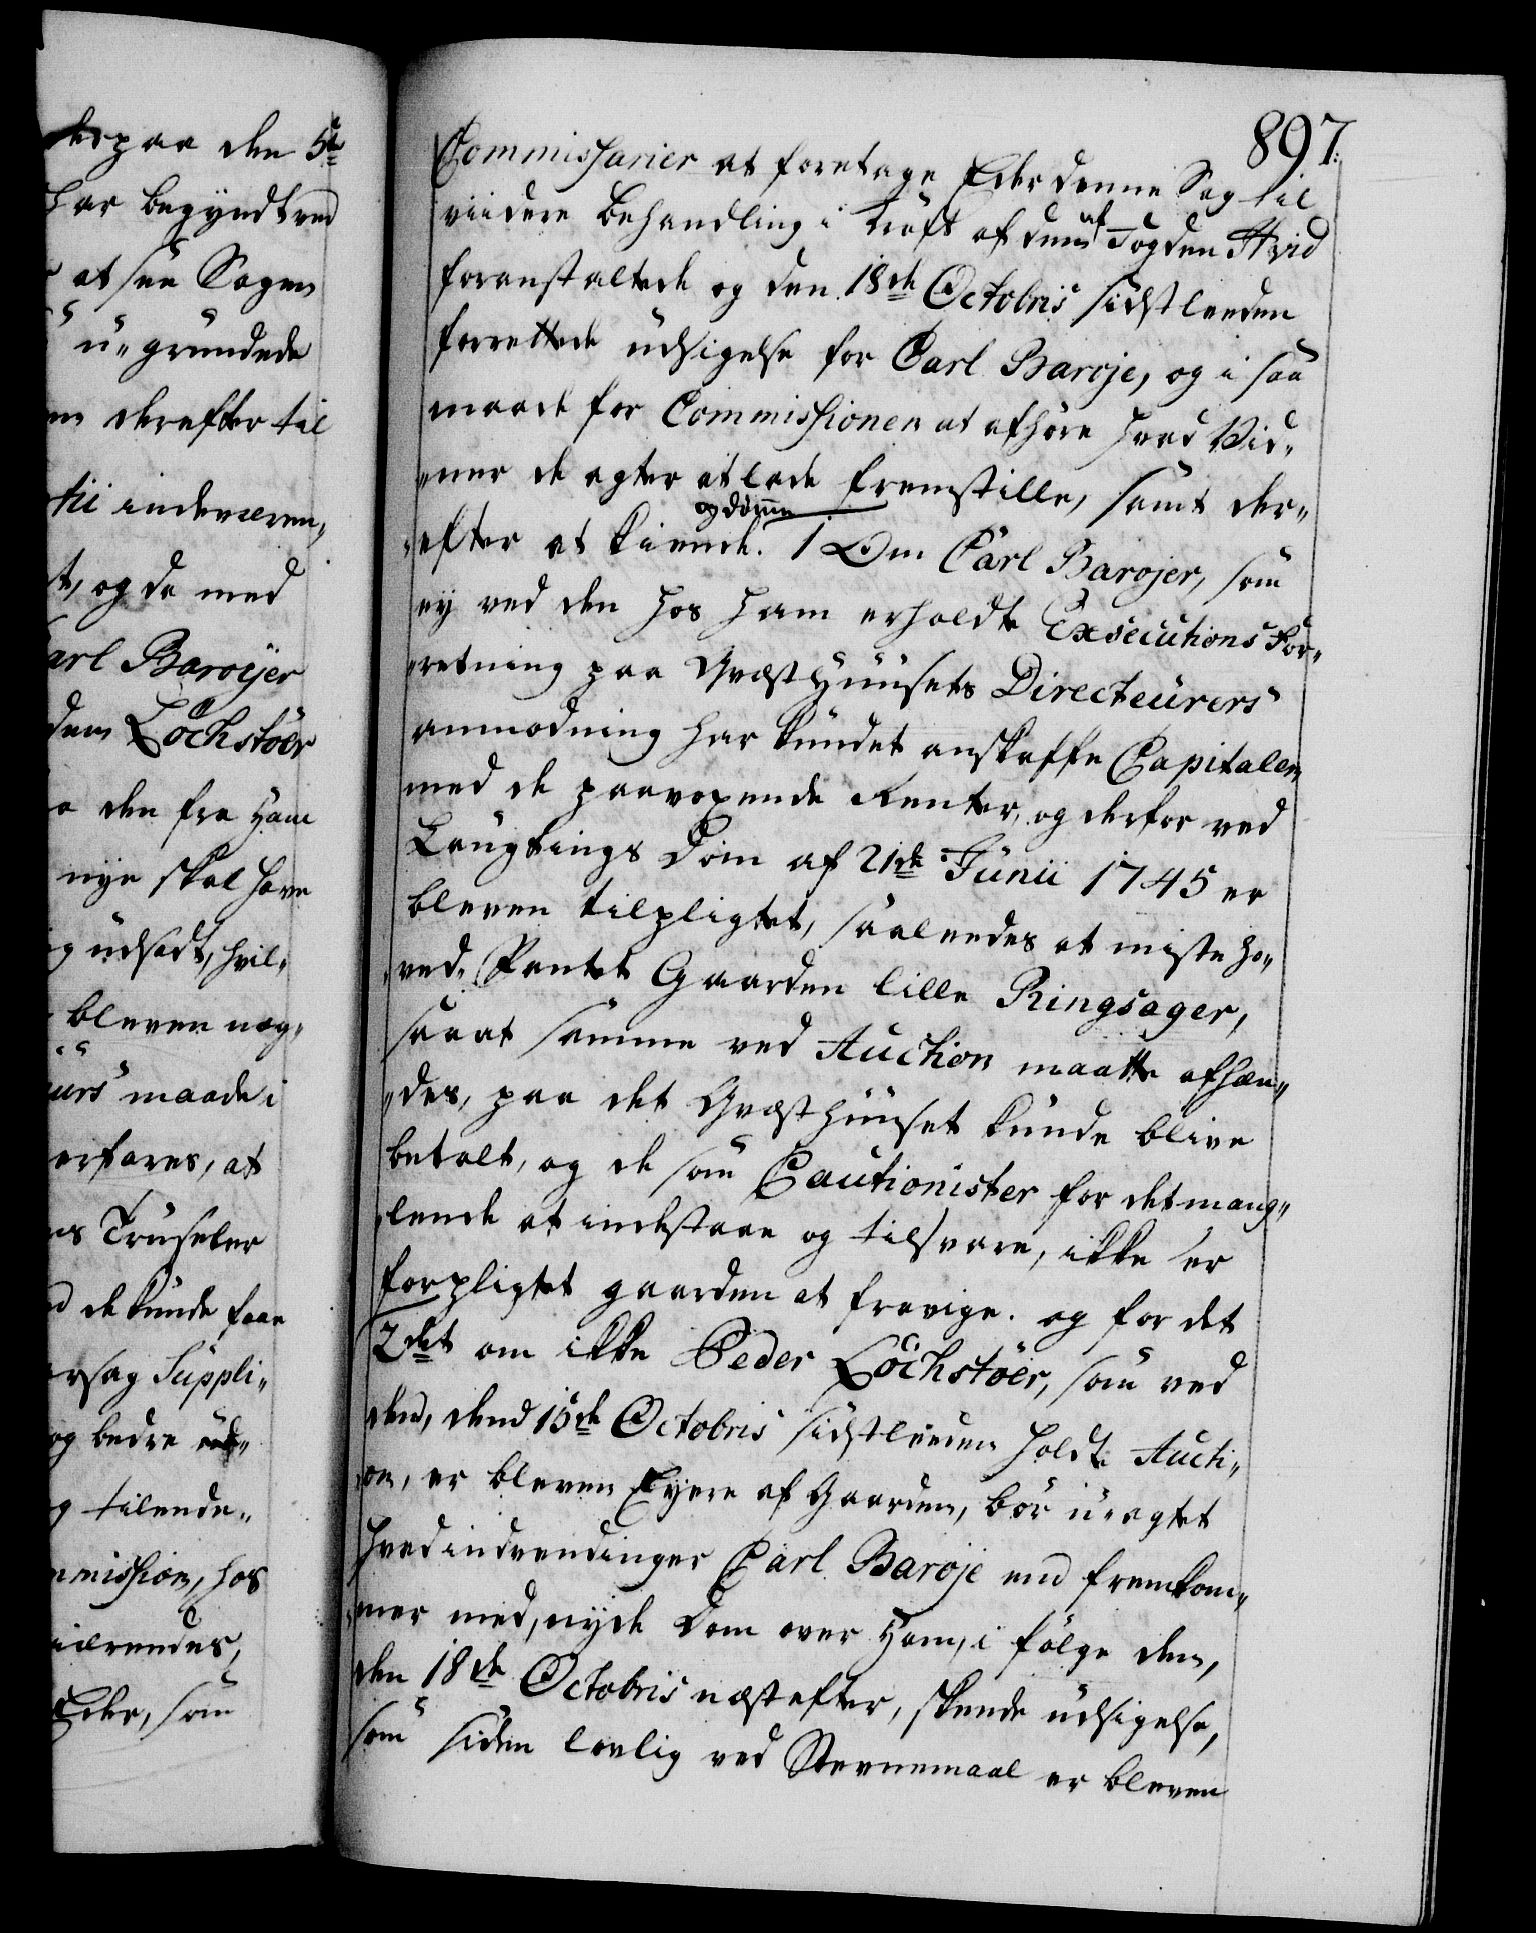 paa den 5te
har begyndt ved
at see Sagen
u-grundede
derefter til
til indeværen,,
t, og da med
arl Baroyer
den Löchstöer
den fra Ham
nye skal have
g udsadt, hvil,,
bleven næg,,
urs maade i
erfares, at
Truseler
de kunde faae
rsag Suppli,,
og bedre
g tilende,,
mmission, hos
Eder, som
897.
Commissarier at foretage Eder denne Sag til
viidere behandling i kraft af dend af Fogden Hvid
foranstaltede og den 18de Octobris sidstleeden
forrettede udsigelse for Carl Baroje, og i saa
maade for Commissionen at afhöre hvad Vid,,
,,ner de agter at lade fremstille, samt der,,
og dömme
,,efter at kiende. 1 Om Carl Barojer, som
ey ved den hos ham erholdte Exsecutions For,,
,,retning paa Qvæsthuusets Directeurers
anmodning har kundet anskaffe Capitalen
med de paavoxende Renter, og derfor ved
Laugtings Dom af 21de Junii 1745 er
bleven tilpligtet, saaleedes at miste ho,,
,,ved-Pantet Gaarden lille Ringsager,
saa at samme ved Auction maatte afhæn,,
,,des, paa det Qvæsthuuset kunde blive
betalt, og de som Cautionister for det mang,,
,,lende at indestaae og tilsvare, ikke er
forpligtet gaarden at fravige. og for det
2det om ikke Peder Löchstöer, som ved
den, dend 15de Octobris sidstleeden holdte Aucti,,
,,on, er bleven Eyere af Gaarden, bör u-agtet
hvad indvendinger Carl Baroje end fremkom,,
,,mer med, nyde Dom over Ham, i fölge den,
den 18de Octobris næstefter, skeede udsigelse,
som siden lovlig ved Stevnemaal er bleven